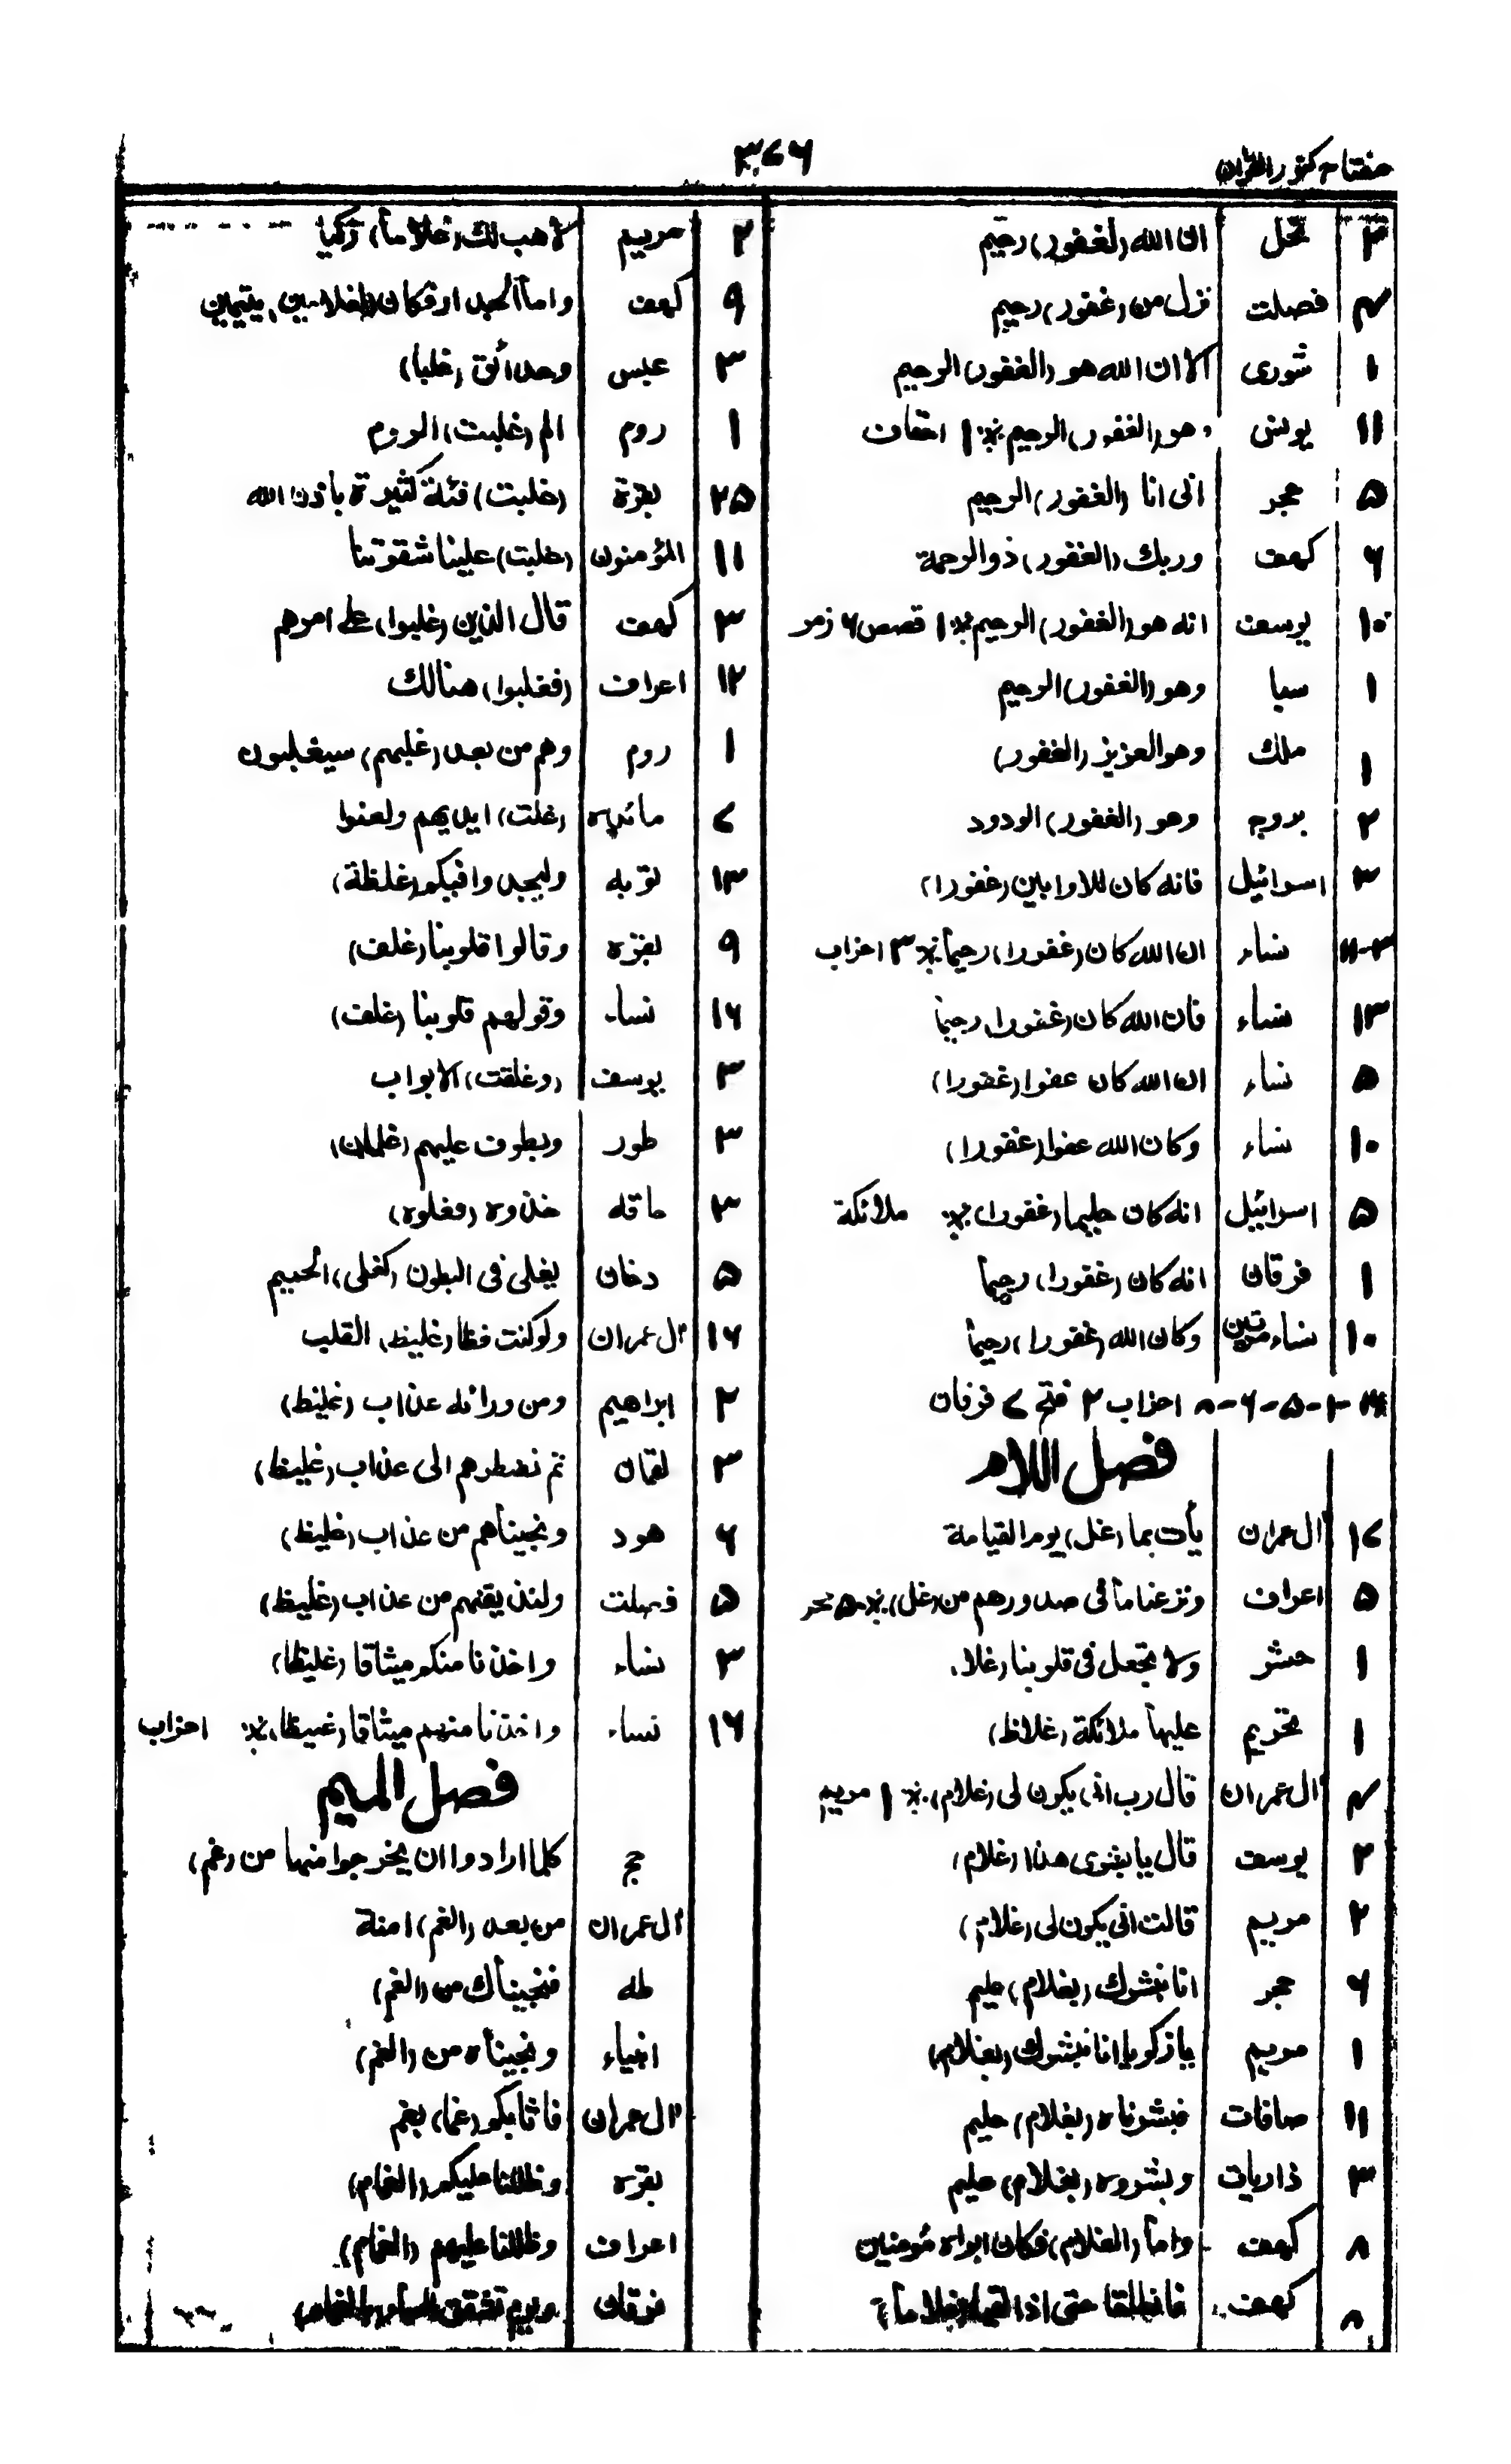 مفتاح كنوز القران
٣٧٦
٣ نحل ان الله (لغفور) رحيم
٤ فصلت نزل من (غفور) رحيم
١ شورى الا ان الله هو (الغفور) الرحيم
١١ يونس وهو (الغفور) الرحيم ※ ١ احقاف
٥ حجر انى انا (الغفور) الرحيم
٦ كهف وربك (الغفور) ذو الرحمة
١٠ يوسف انه هو (الغفور) الرحيم ※ ١ قصص ٦ زمر
١ سبا وهو (الغفور) الرحيم
١ ملك وهو العزيز (الغفور)
٢ بروج وهو (الغفور) الودود
٣ اسرائيل فانه كان للاوابين (غفورا)
نساء ان الله كان (غفورا) رحيما ※ ٣ احزاب
١٣ نساء فان الله كان (غفورا) رحيما
٥ نساء ان الله كان عفوا (غفورا)
١٠ نساء وكان الله عفوا (غفورا)
٥ اسرائيل انه كان حليما (غفورا) ※ ملائكة
١ فرقان انه كان (غفورا) رحيما
١٠ نساء مرتين وكان الله (غفورا) رحيما
١-٥-٦-٨ احزاب ٢ فتح ٧ فرقان
فصل اللام
١٧ اٰل عمران يأت بما (غل) يوم القيامة
٥ اعراف ونزعنا ما فى صدورهم من (غل) ※ ٥ حجر
١ حشر ولا تجعل فى قلوبنا (غلا)
١ تحريم عليها ملائكة (غلاظ)
٤ اٰل عمران قال رب انى يكون لى (غلام) ※ ١ مريم
٢ يوسف قال يا بشرى هذا (غلام)
٢ مريم قالت انى يكون لى (غلام)
٦ حجر انا نبشرك (بغلام) عليم
١ مريم يا زكريا انا نبشرك (بغلام)
١١ صافات فبشرناه (بغلام) حليم
٣ ذاريات وبشروه (بغلام) عليم
٨ كهف واما (الغلام) فكان ابواه مؤمنين
٨ كهف فانطلقا حتى اذا لقيا (غلاما)
٢ مريم لاهب لك (غلاما) زكيا
٩ كهف واما الجدار فكان (لغلامين) يتيمين
٣ عبس وحدائق (غلبا)
١ روم الم (غلبت) الروم
٢٥ بقرة (غلبت) فئة كثيرة باذن الله
١١ المؤمنون (غلبت) علينا شقوتنا
٣ كهف قال الذين (غلبوا) على امرهم
١٢ اعراف (فغلبوا) هنالك
١ روم وهم من بعد (غلبهم) سيغلبون
٧ مائده (غلت) ايديهم ولعنوا
١٣ توبه وليجدوا فيكم (غلظة)
٩ بقره وقالوا قلوبنا (غلف)
١٦ نساء وقولهم قلوبنا (غلف)
٣ يوسف (وغلقت) الابواب
٣ طور ويطوف عليهم (غلمان)
٣ حاقه خذوه (فغلوه)
٥ دخان يغلى فى البطون (كغلى) الحميم
١٦ اٰل عمران ولو كنت فظا (غليظ) القلب
٢ ابراهيم ومن ورائه عذاب (غليظ)
٣ لقمان ثم نضطرهم الى عذاب (غليظ)
٦ هود ونجيناهم من عذاب (غليظ)
٥ فصلت ولنذيقنهم من عذاب (غليظ)
٣ نساء واخذنا منكم ميثاقا (غليظا)
١٦ نساء واخذنا منهم ميثاقا (غليظا) ※ احزاب
فصل الميم
حج كلما ارادوا ان يخرجوا منها من (غم)
اٰل عمران من بعد (الغم) امنة
طه فنجيناك من (الغم)
انبياء ونجيناه من (الغم)
اٰل عمران فاثابكم (غما) بغم
بقره وظللنا عليكم (الغمام)
اعراف وظللنا عليهم (الغمام)
فرقان ويوم تشقق السماء (بالغمام)